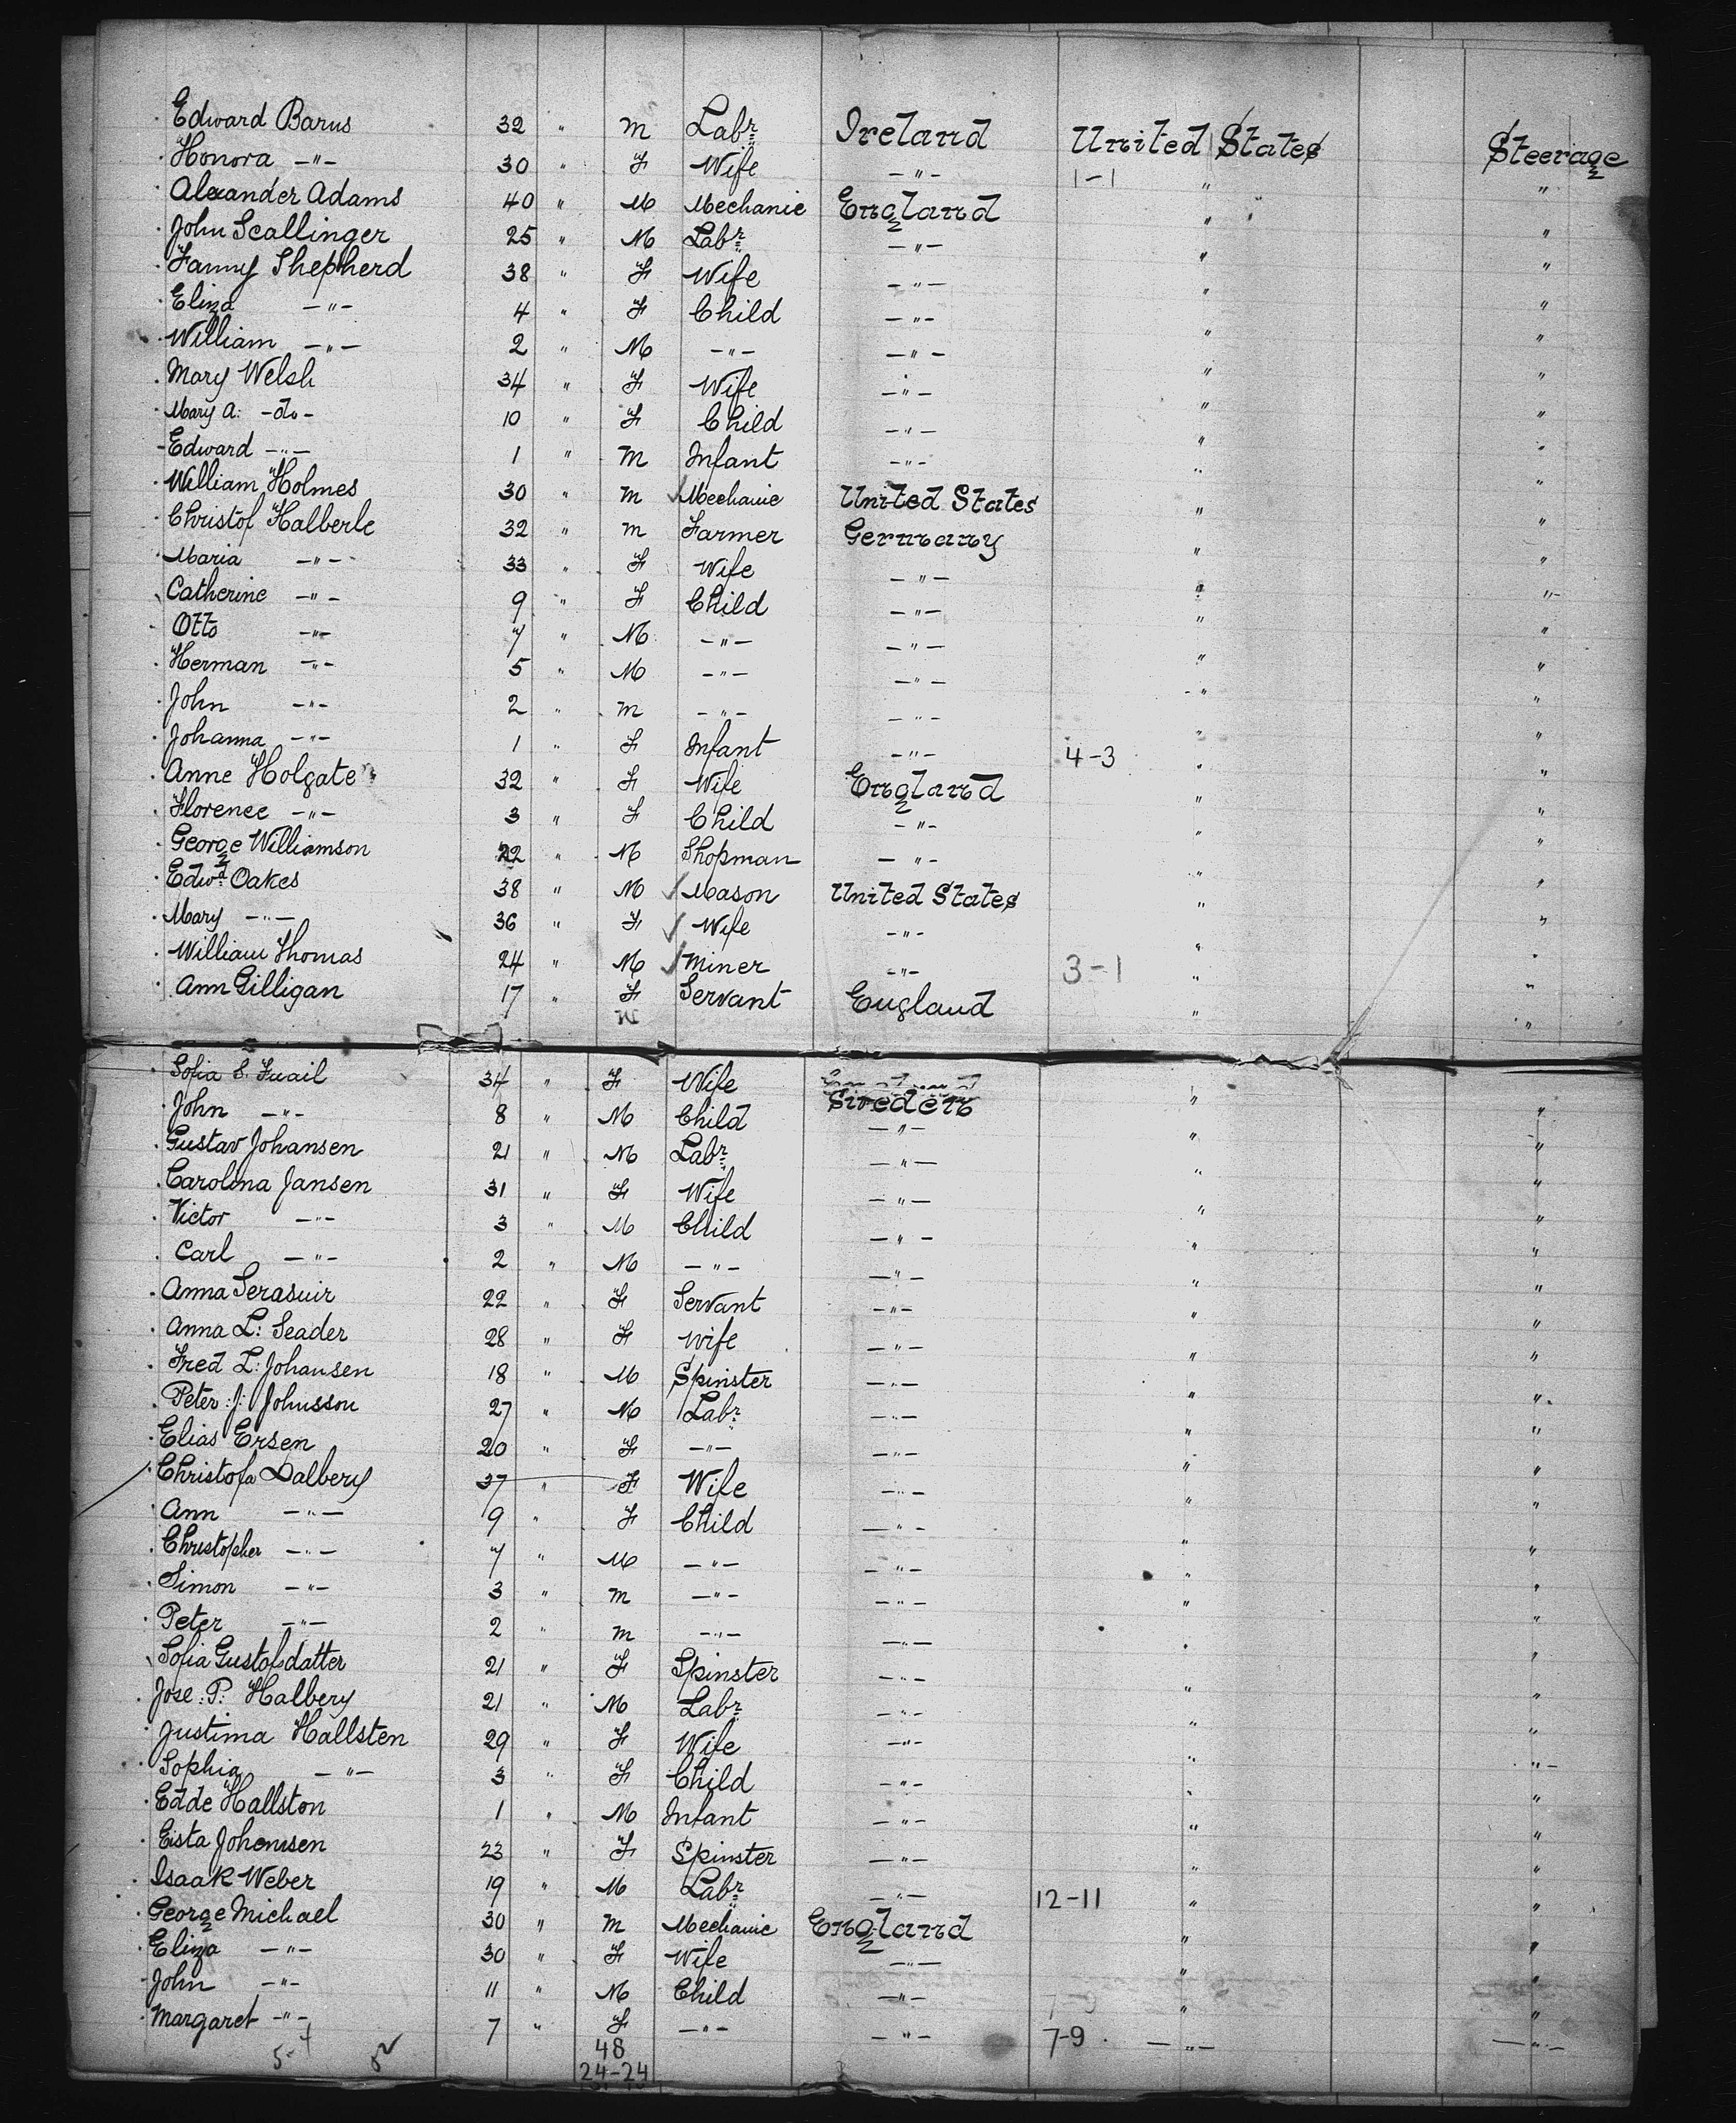 Edward Barus 32 " m Labr Ireland United States Steerage
Honora -"- 30 " F Wife -"- 1-1 " "
Alexander Adams 40 " M Mechanic England " "
John Scallinger 25 " M Labr -"- " "
Fanny Shepherd 38 " F Wife -"- " "
Eliza -"- 4 " F Child -"- " "
William -"- 2 " M -"- -"- " "
Mary Welsh 34 " F Wife -"- " "
Mary A: -do- 10 " F Child -"- " "
Edward -"- 1 " m Infant -"- " "
William Holmes 30 " m Mechanic United States " "
Christof Halberle 32 " m Farmer Germany " "
Maria -"- 33 " F Wife -"- " "
Catherine -"- 9 " F Child -"- " "
Otto -"- 7 " M -"- -"- " "
Herman -"- 5 " M -"- -"- " "
John -"- 2 " m -"- -"- " "
Johanna -"- 1 " F Infant -"- 4-3 " "
Anne Holgate 32 " F Wife England " "
Florence -"- 3 " F Child -"- " "
George Williamson 22 " M Shopman -"- " "
Edwd Oakes 38 " M Mason United States " "
Mary -"- 36 " F Wife -"- " "
William Thomas 24 " M Miner -"- 3-1 " "
Ann Gilligan 17 " F Servant England " "
Sofia S. 34 " F Wife Sweden " "
John -"- 8 " M Child -"- " "
Gustav Johansen 21 " M Labr -"- " "
Carolina Jansen 31 " F Wife -"- " "
Victor -"- 3 " M Child -"- " "
Carl -"- 2 " M -"- -"- " "
Anna 22 " F Servant -"- " "
Anna L: Seader 28 " F Wife -"- " "
Fred L: Johansen 18 " M Spinster -"- " "
Peter J: Johnsson 27 " M Labr -"- " "
Elias Ersen 20 " F -"- -"- " "
Christofa Dalbery 37 " F Wife -"- " "
Ann -"- 9 " F Child -"- " "
Christopher -"- 7 " M -"- -"- " "
Simon -"- 3 " m -"- -"- " "
Peter -"- 2 " m -"- -"- " "
Sofia Gustofsdatter 21 " F Spinster -"- " "
Jose: P: Halbery 21 " M Labr -"- " "
Justima Hallsten 29 " F Wife -"- " "
Sophia -"- 3 " F Child -"- " "
Edde Hallston 1 " M Infant -"- " "
Eista Johensen 23 " F Spinster -"- " "
Isaak Weber 19 " M Labr -"- 12-11 " "
George Michael 30 " m Mechanic England " "
Eliza -"- 30 " F Wife -"- " "
John -"- 11 " M Child -"- " "
Margaret -"- 7 " F -"- -"- 7-9 -"- -"-
48
24-24